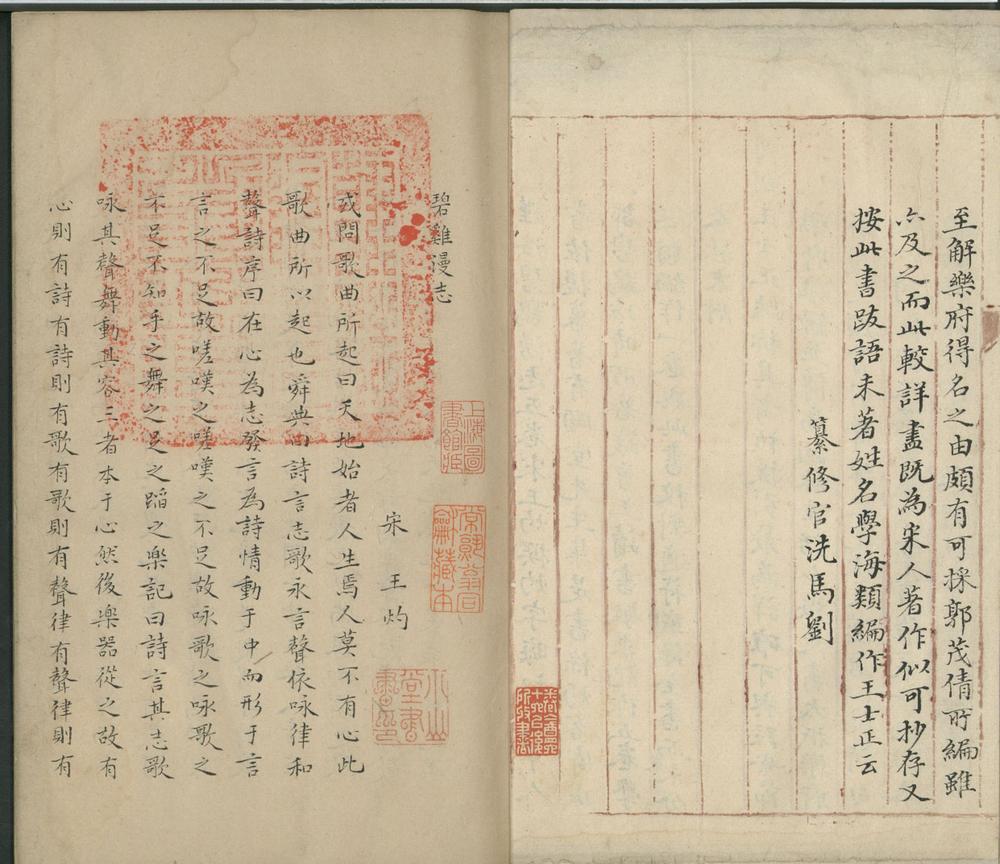 至解樂府得名之由頗有可採郭茂倩所編雖
亦及之而此較詳盡既為宋人著作似可抄存又
按此書跋語未著姓名學海類編作王士正云
纂修官洗馬劉
碧雞漫志
宋 王灼
或問歌曲所起曰天地始者人生焉人莫不有心此
歌曲所以起也舜典曰詩言志歌永言聲依咏律和
聲詩序曰在心為志發言為詩情動于中而形于言
言之不足故嗟嘆之嗟嘆之不足故咏歌之咏歌之
不足不知手之舞之足之蹈之樂記曰詩言其志歌
咏其聲舞動其容三者本于心然後樂器從之故有
心則有詩有詩則有歌有歌則有聲律有聲律則有
上海圖
書館藏